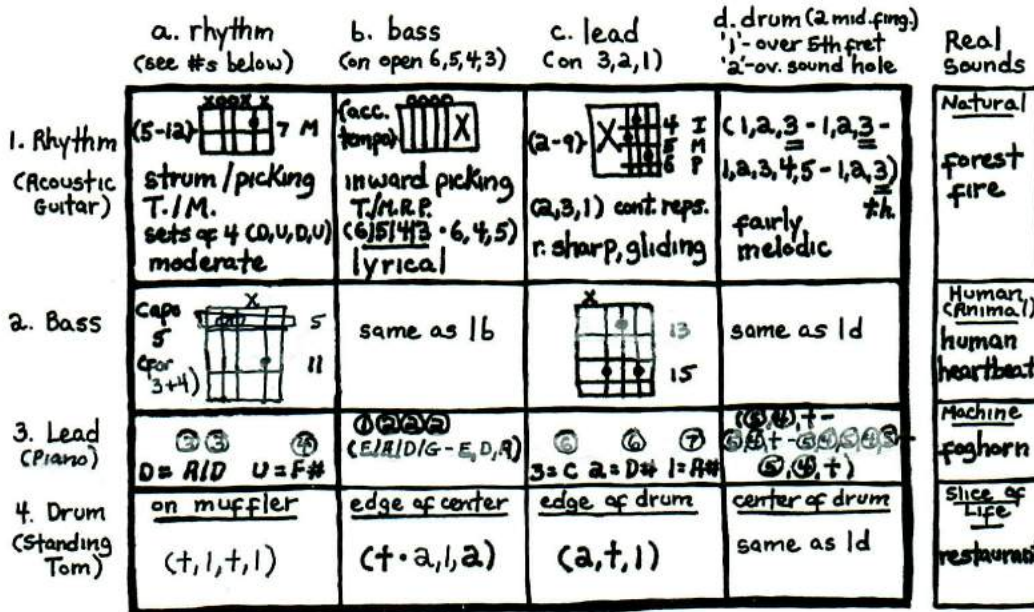 a. rhythm
(see #s below)
b. bass
(on open 6,5,4,3)
c. lead
(on 3,2,1)
d. drum (2 mid. fing.)
'1'-over 5th fret
'2'-ov. sound hole
Real
Sounds
1. Rhythm
(Acoustic
Guitar)
xoox x
(5-12)
7 M
strum/picking
T./M.
sets of 4 (D,U,D,U)
moderate
(acc.
tempo)
oooo
X
inward picking
T./M.R.P.
(6)5/4/3 · 6,4,5)
lyrical
(2-9)
X
4 I
5 M
6 P
(2,3,1) cont. reps.
r. sharp, gliding
(1,2,3-1,2,3-
1,2,3,4,5-1,2,3)
t.h.
fairly
melodic
Natural
forest
fire
2. Bass
Capo
5
(for
3+4)
x
5
11
same as 1b
x
13
15
same as 1d
Human
(Animal)
human
heartbeat
3. Lead
(Piano)
3 3 4
D = A/D U = F#
1 2 2 2
(E/A/D/G - E, D, A)
6 6 7
3=C 2=D# 1=A#
(5,4,t-
5,4,t-5,4,5,4,5-
5,4,t)
Machine
foghorn
4. Drum
(Standing
Tom)
on muffler
(t,1,t,1)
edge of center
(t·2,1,2)
edge of drum
(2,t,1)
center of drum
same as 1d
Slice of
Life
restaurant